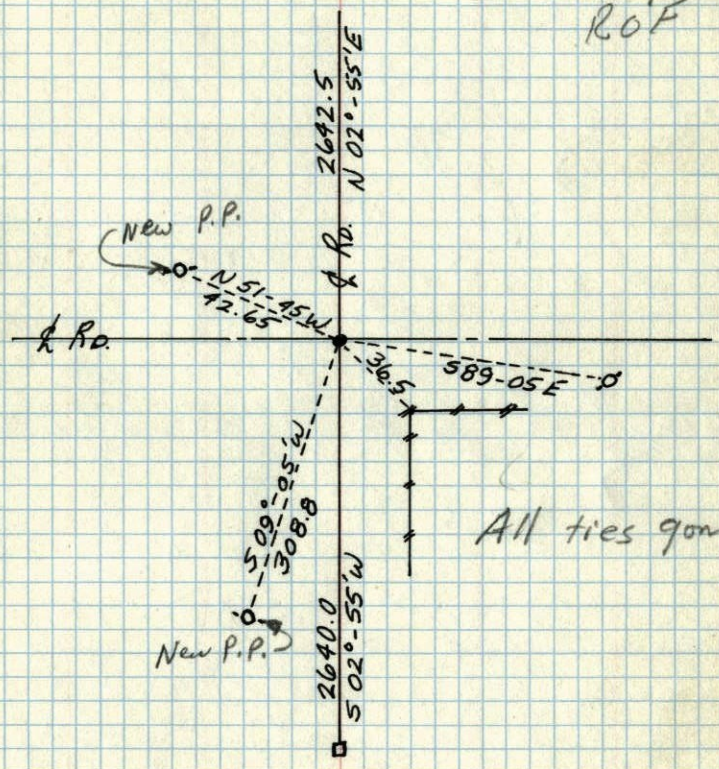 R O F
2642.5
N 02°-55'E
New P.P.
℄ RD.
N 51-45W
42.65
℄ RD.
36.5
S89-05E
S 09°-05'W
308.8
All ties gon
New P.P.
2640.0
S 02°-55'W